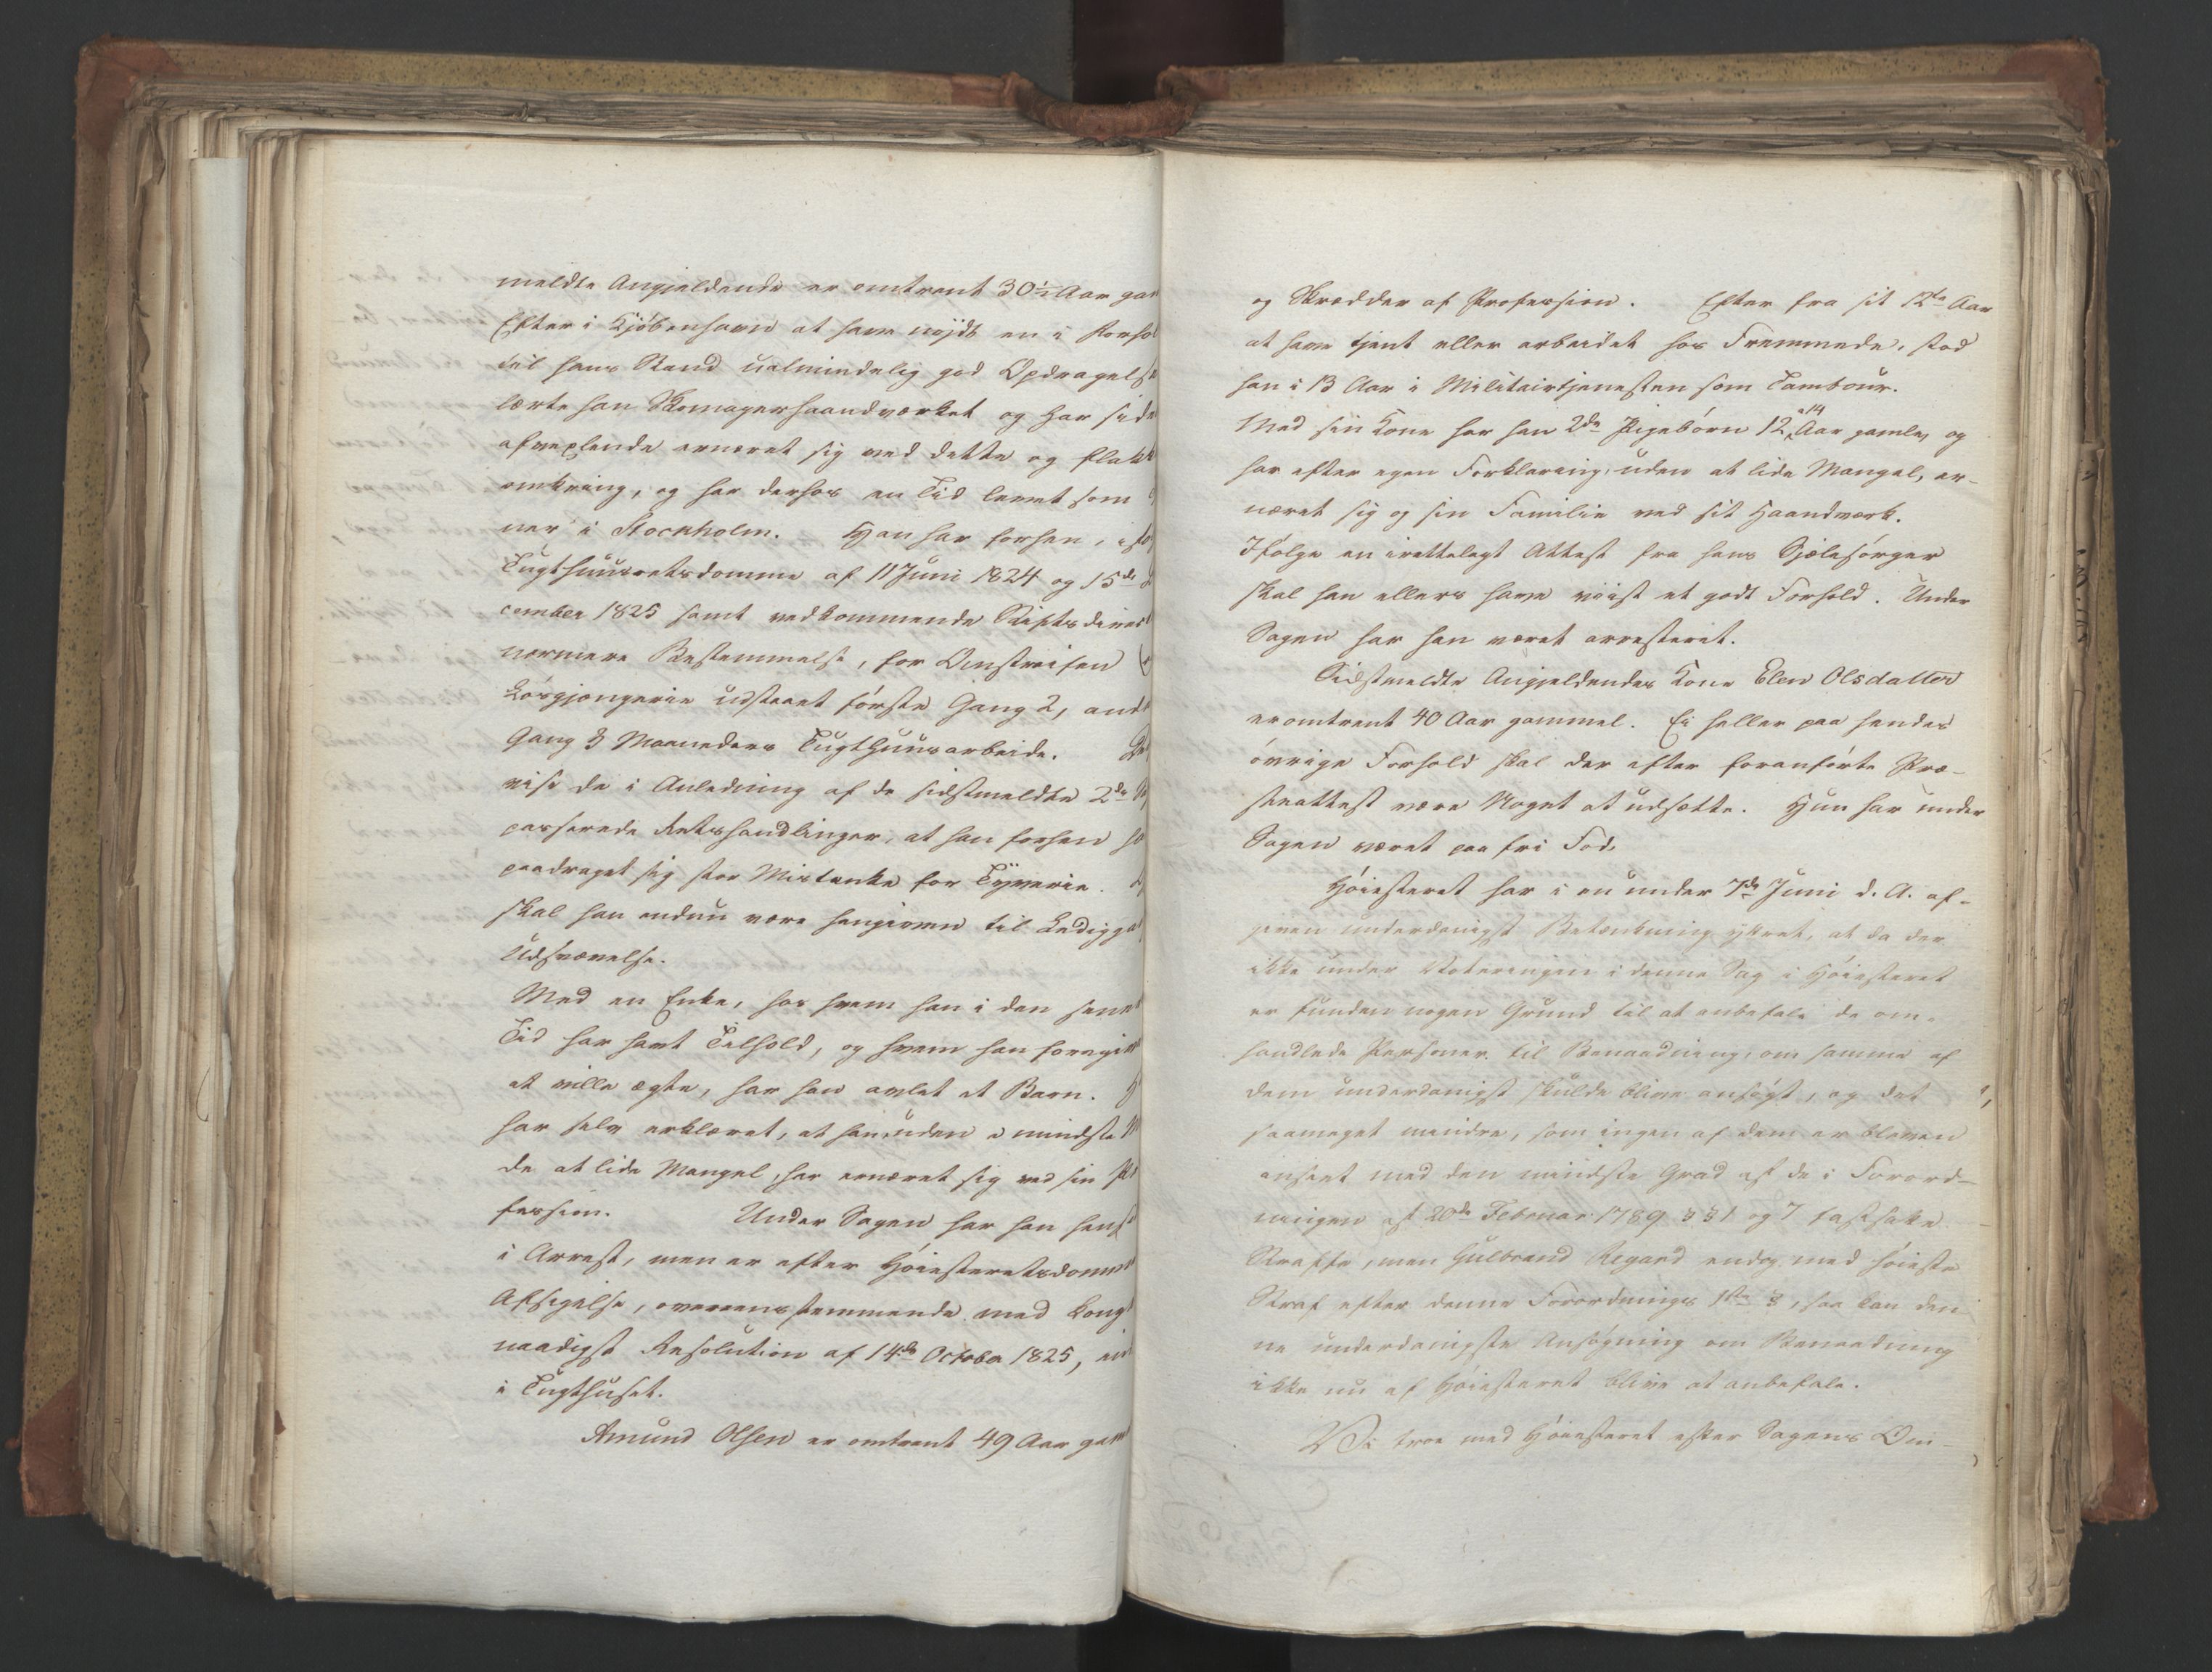 meldte Angjeldende er omtrent 30½ Aar gam
Efter i Kjöbenhavn at have nydt en i Forhol
til hans Stand ualmindelig god Opdragelse
lærte han Skomagerhaandværket og har side
afvexlende ernæret sig ved dette og flakk
omkring, og har derhos en Tid levet som
ner i Stockholm. Han har forhen, ifø
Tugthuusretsdomme af 11 Juni 1824 og 15de D
cember 1825 samt vedkommende Stiftsdirect
nærmere Bestemmelse, for Omstreifen
Løsgjængerie udstaaet förste Gang 2, anden
Gang 3 Maaneders Tugthuusarbeide.
vise de i Anledning af de sidstmeldte 2de
passerede Retshandlinger, at han forhen ha
paadraget sig stor Mistanke for Tyverie.
skal han endnu være hengiven til Lediggan
Udsvævelse.
Med en Enke, hos hvem han i den sener
Tid har havt Tilhold, og hvem han foregive
at ville ægte, har han avlet et Barn. H
har selv erklæret, at han, uden i mindste M
de at lide Mangel, har ernæret sig ved sin Pro
fession. Under Sagen har han hens
i Arrest, men er efter Höiesteretsdomme
Afsigelse, overensstemmende med Kongl
naadigst Resolution af 14de October 1825, ind
i Tugthuset.
Amund Olsen er omtrent 49 Aar gam
og Skrædder af Profession. Efter fra sit 12te Aar
at have tjent eller arbeidet hos Fremmede, stod
han i 13 Aar i Militairtjenesten som Tambour.
Med sin Kone har han 2de Pigebörn 12 a 14 Aar gamle, og
har efter egen Forklaring, uden at lide Mangel, er-
næret sig og sin Familie ved sit Haandværk.
Ifölge en irettelagt Attest fra hans Sjælesörger
skal han ellers have viist et godt Forhold. Under
Sagen har han været arresteret.
Sidstmeldte Angjeldendes Kone Elen Olsdatter
er omtrent 40 Aar gammel. Ei heller paa hendes
övrige Forhold skal der efter foranförte Præ-
steattest være Noget at udsætte. Hun har under
Sagen været paa fri Fod.
Höiesteret har i en under 7de Juni d. A. af-
given underdanigst Betænkning yttret, at da der
ikke under Voteringen i denne Sag i Höiesteret
er funden nogen Grund til at anbefale de om-
handlede Personer til Benaadning, om samme af
dem underdanigst skulde blive ansögt, og det
saameget mindre, som ingen af dem er bleven
anseet med den mindste Grad af de i Forord-
ningen af 20de Februar 1789 §§ 1 og 7 fastsatte
Straffe, men Gulbrand Regard endog med höieste
Straf efter denne Forordnings 1ste §, saa kan den-
ne underdanigste Ansögning om Benaadning
ikke nu af Höiesteret blive at anbefale.
Vi troe med Höiesteret efter Sagens Om-